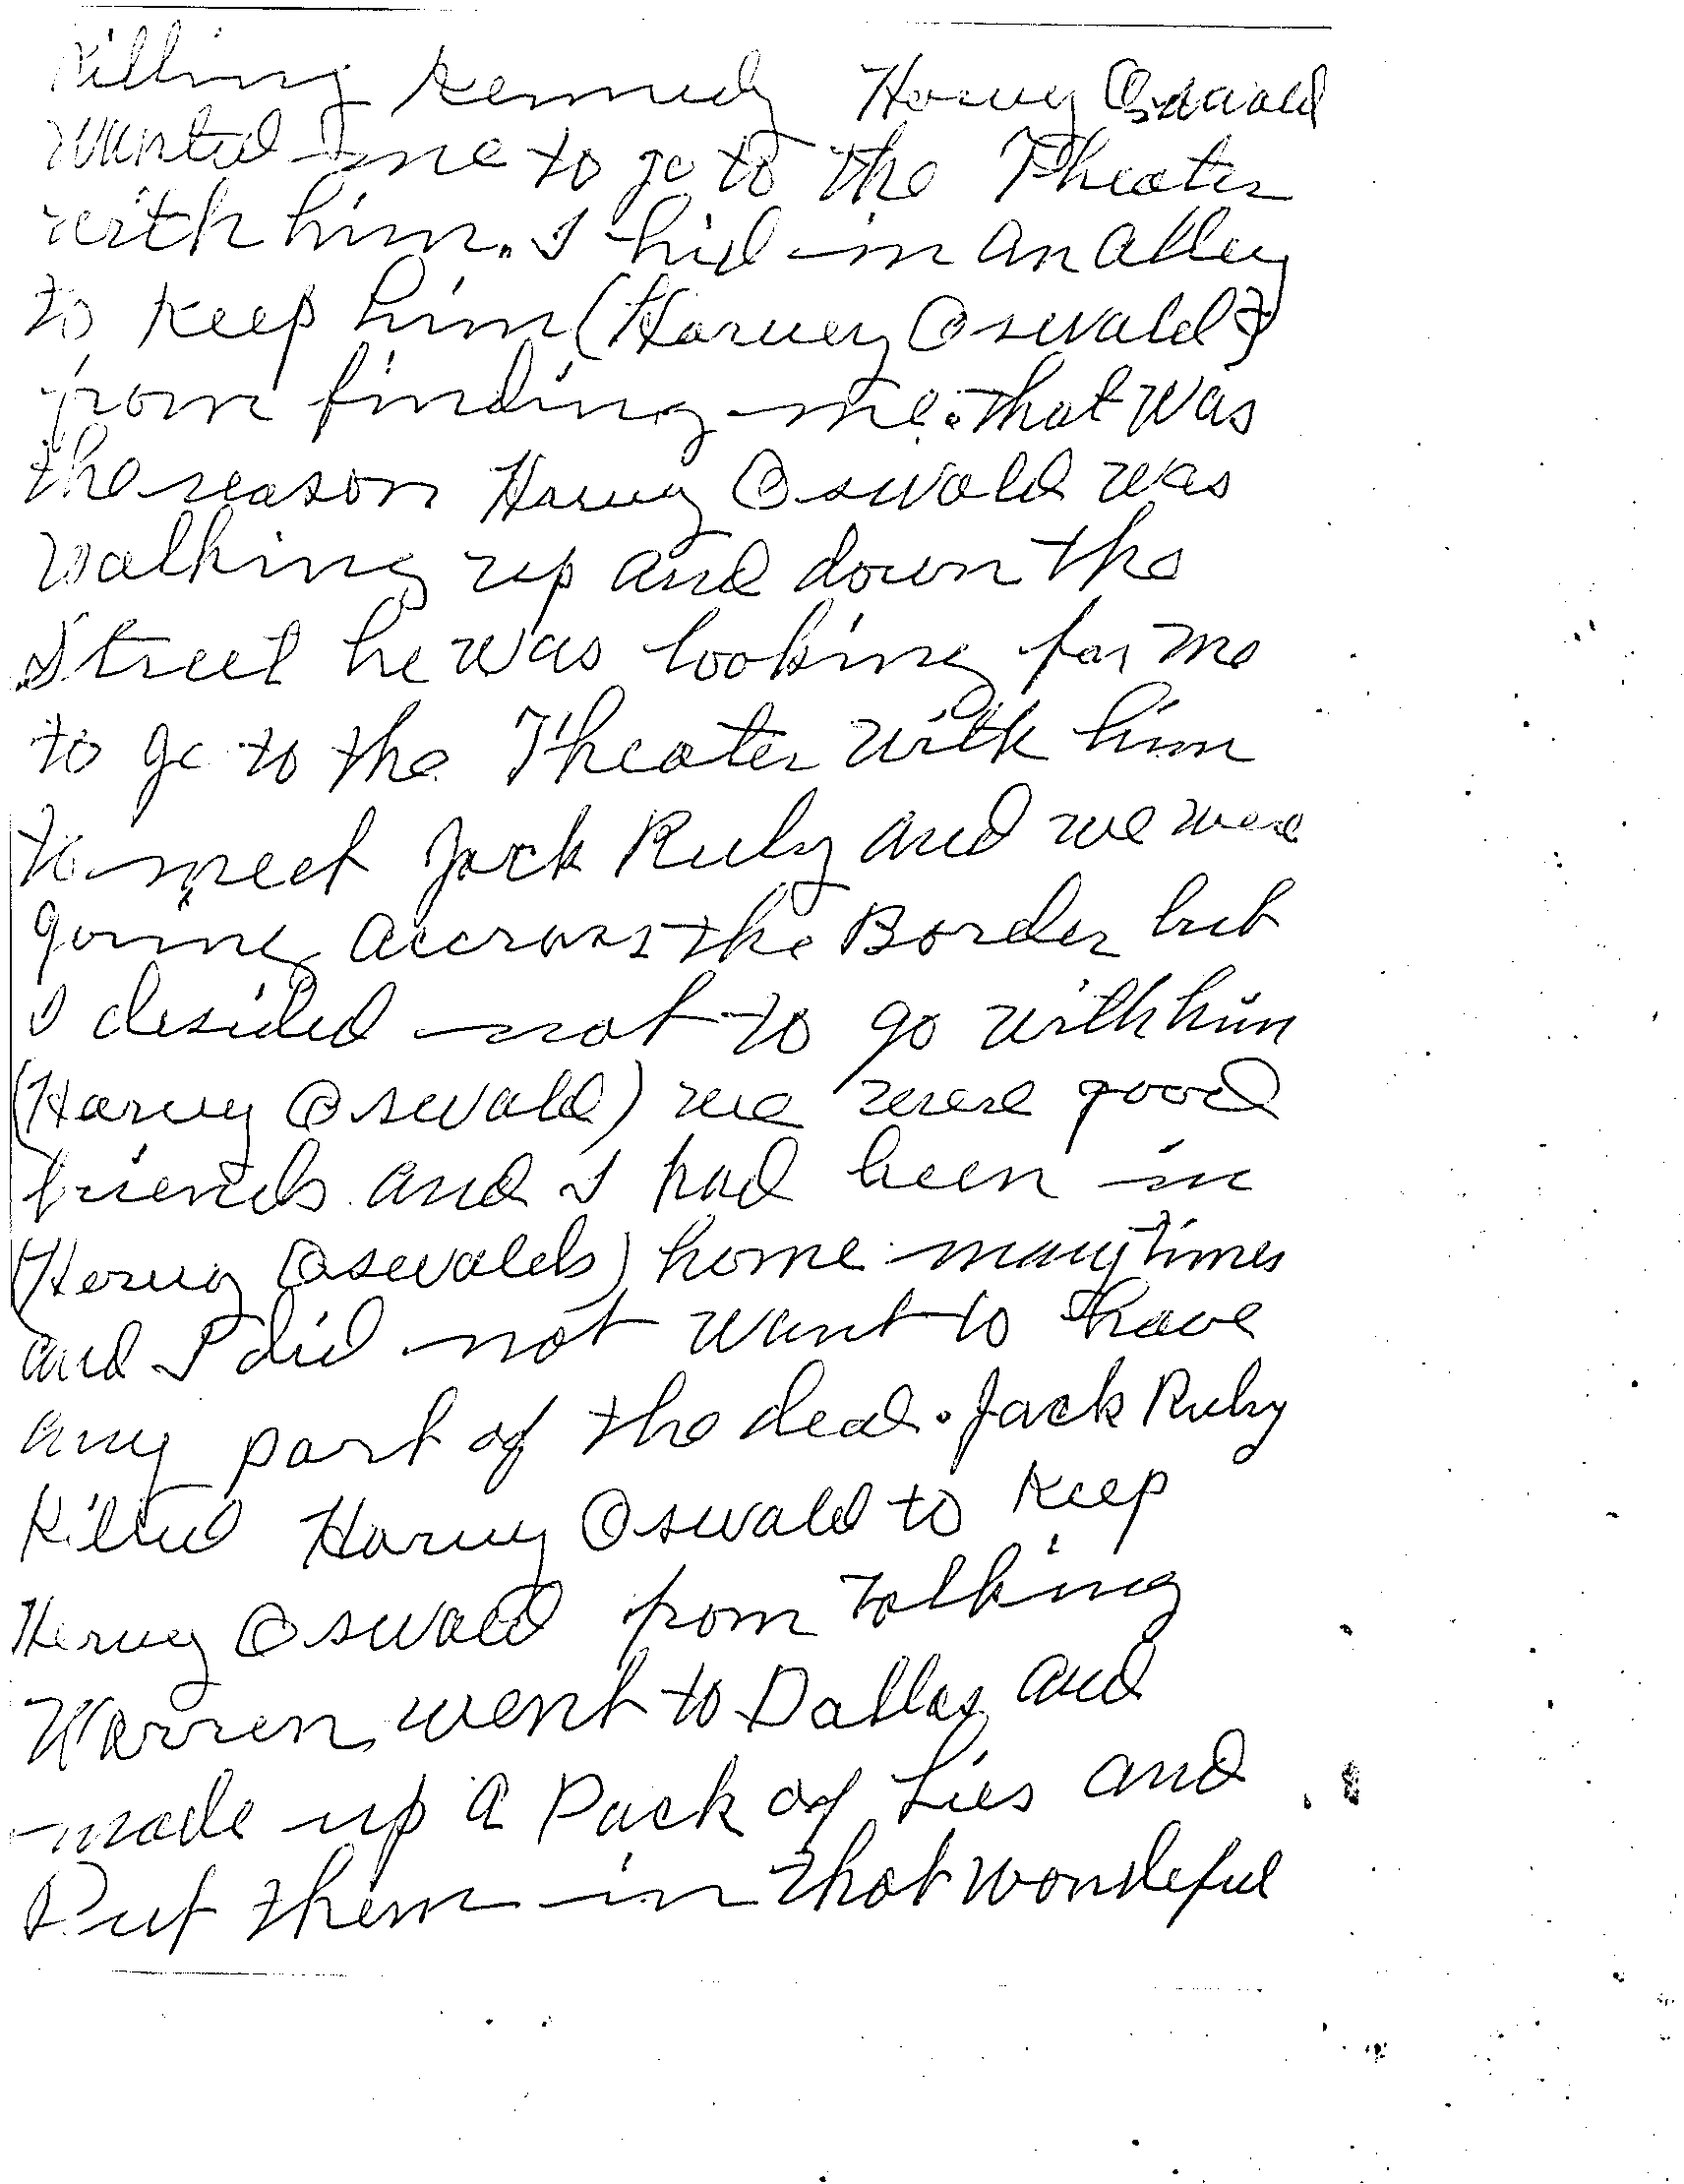 Killing Kennedy Harvey Oswald
wanted me to go to the Theater
with him. I hid in an alley
to keep him (Harvey Oswald)
from finding me. that was
the reason Harvey Oswald was
walking up and down the
Street he was looking for me
to go to the Theater with him
to meet Jack Ruby and we were
going accross the Border but
I desided not to go with him
(Harvey Oswald) we were good
friends and I had been in
(Harvey Oswalds) home many times
and I did not want to have
any part of the deal. Jack Ruby
Killed Harvey Oswald to keep
Harvey Oswald from talking
Warren went to Dallas and
made up a Pack of Lies and
Put them in that wondeful